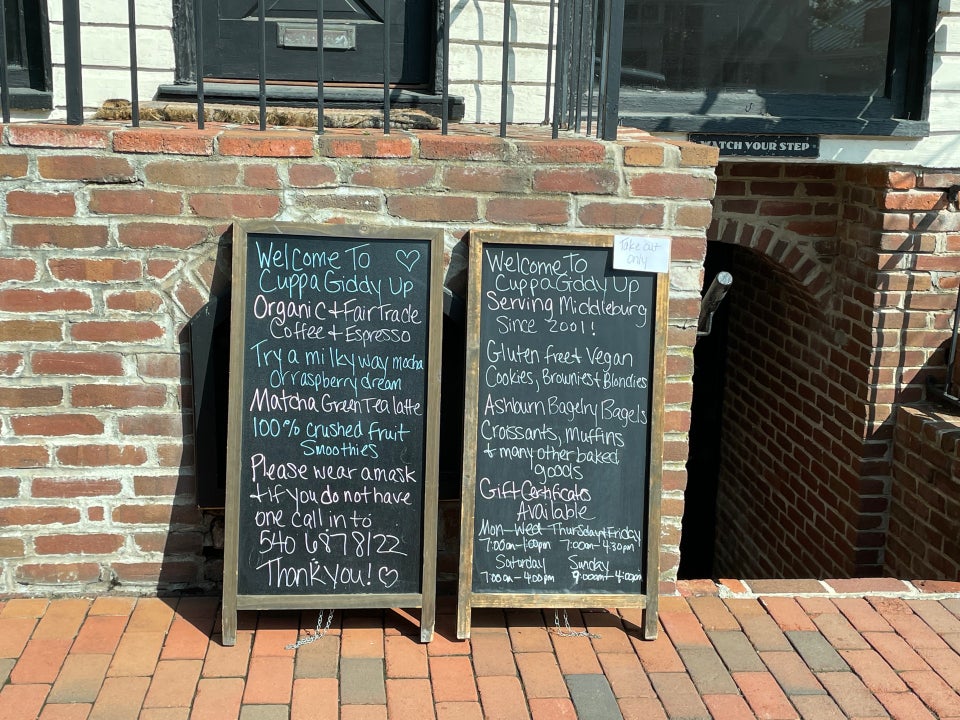 WATCH YOUR STEP
Welcome To
Cuppa Giddy Up
Organic & Fair Trade
Coffee & Espresso
Try a milky way mocha
Or raspberry dream
Matcha Green Tea latte
100% crushed fruit
Smoothies
Please wear a mask
& if you do not have
one call in to
540 687 8122
Thank you!
Take out
only
Welcome To
Cuppa Giddy Up
Serving Middleburg
Since 2001!
Gluten free & Vegan
Cookies, Brownies & Blondies
Ashburn Bagelry Bagels
Croissants, Muffins
& many other baked
goods
Gift Certificate
Available
Mon-Wed Thursday & Friday
7:00am-1:00pm 7:00am-4:30pm
Saturday Sunday
7:00am-4:00pm 9:00am-4:00pm